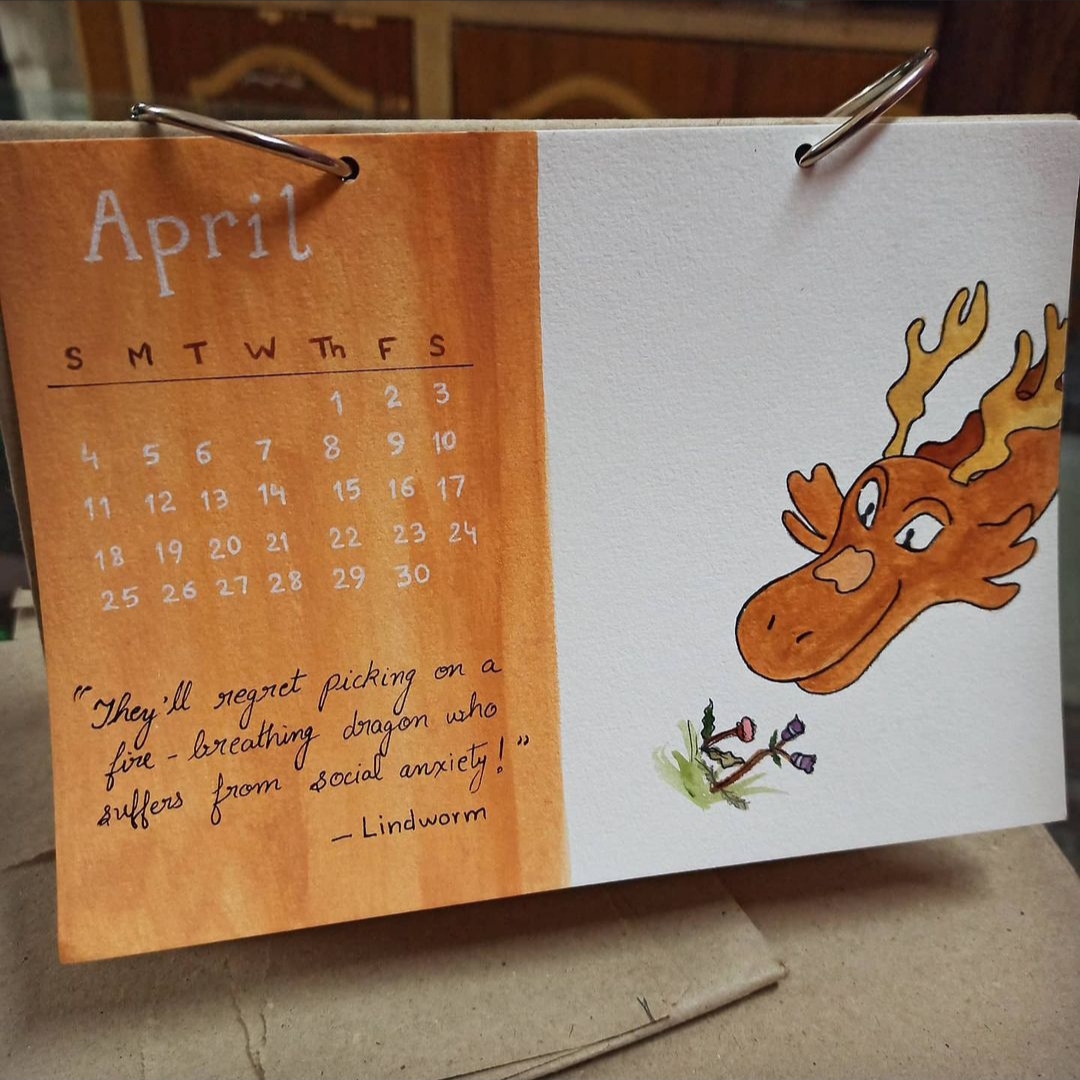 April
S M T W Th F S
1 2 3
4 5 6 7 8 9 10
11 12 13 14 15 16 17
18 19 20 21 22 23 24
25 26 27 28 29 30
"They'll regret picking on a
fire-breathing dragon who
suffers from social anxiety!"
— Lindworm